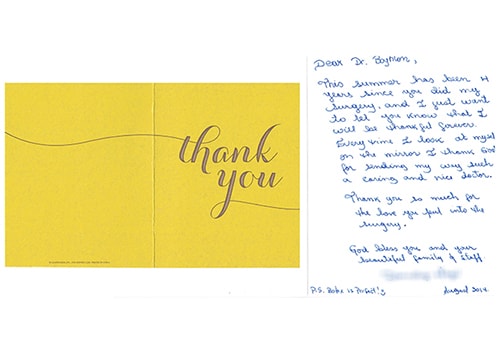 thank
you
Dear Dr. Bymon,
This summer has been 4
years since you did my
surgery, and I just want
to let you know that I
will be thankful forever.
Every time I look at myself
on the mirror I thank God
for sending my way such
a caring and nice doctor.
Thank you so much for
the love you put into the
surgery.
God bless you and your
beautiful family & Staff
P.S. is Perfect!
August 2014